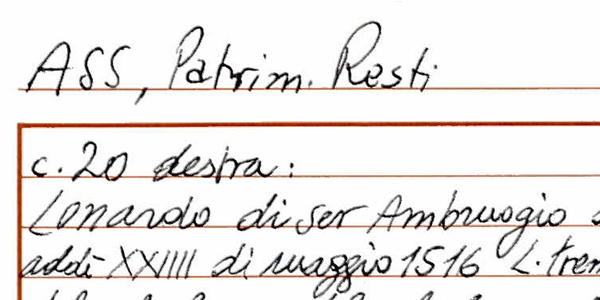 ASS, Patrim. Resti
c. 20 destra:
Lonardo di ser Ambruogio
addì XXIIII di maggio 1516 L. trem